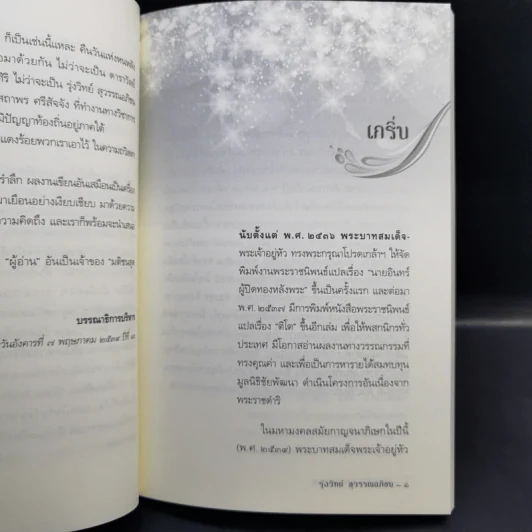 ก็เป็นเช่นนี้แหละ คืนวันแห่งหนหลัง
อมาด้วยกัน ไม่ว่าจะเป็น ดาราวัลย์
ศิริ ไม่ว่าจะเป็น รุ่งวิทย์ สุวรรณอภิชน
สถาพร ศรีสัจจัง ที่ทำงานทางวิชาการ
มิปัญญาท้องถิ่นอยู่ภาคใต้
แดงร้อยพวกเราเอาไว้
รำลึก ผลงานเขียนอันเสมือนเป็นเครื่อง
าเยือนอย่างเงียบเชียบ มาด้วยความ
วามคิดถึง และเราก็พร้อมจะนำเสนอ
"ผู้อ่าน" อันเป็นเจ้าของ
บรรณาธิการบริหาร
วันอังคารที่ ๗ พฤษภาคม ๒๕๓๙
เกริ่น
นับตั้งแต่ พ.ศ. ๒๕๓๖ พระบาทสมเด็จ-
พระเจ้าอยู่หัว ทรงพระกรุณาโปรดเกล้าฯ ให้จัด
พิมพ์งานพระราชนิพนธ์แปลเรื่อง "นายอินทร์
ผู้ปิดทองหลังพระ" ขึ้นเป็นครั้งแรก และต่อมา
พ.ศ. ๒๕๓๗ มีการพิมพ์หนังสือพระราชนิพนธ์
แปลเรื่อง "ติโต" ขึ้นอีกเล่ม เพื่อให้พสกนิกรทั่ว
ประเทศ มีโอกาสอ่านผลงานทางวรรณกรรมที่
ทรงคุณค่า และเพื่อเป็นการหารายได้สมทบทุน
มูลนิธิชัยพัฒนา ดำเนินโครงการอันเนื่องจาก
พระราชดำริ
ในมหามงคลสมัยกาญจนาภิเษกในปีนี้
(พ.ศ. ๒๕๓๙) พระบาทสมเด็จพระเจ้าอยู่หัว
รุ่งวิทย์ สุวรรณอภิชน – ๑